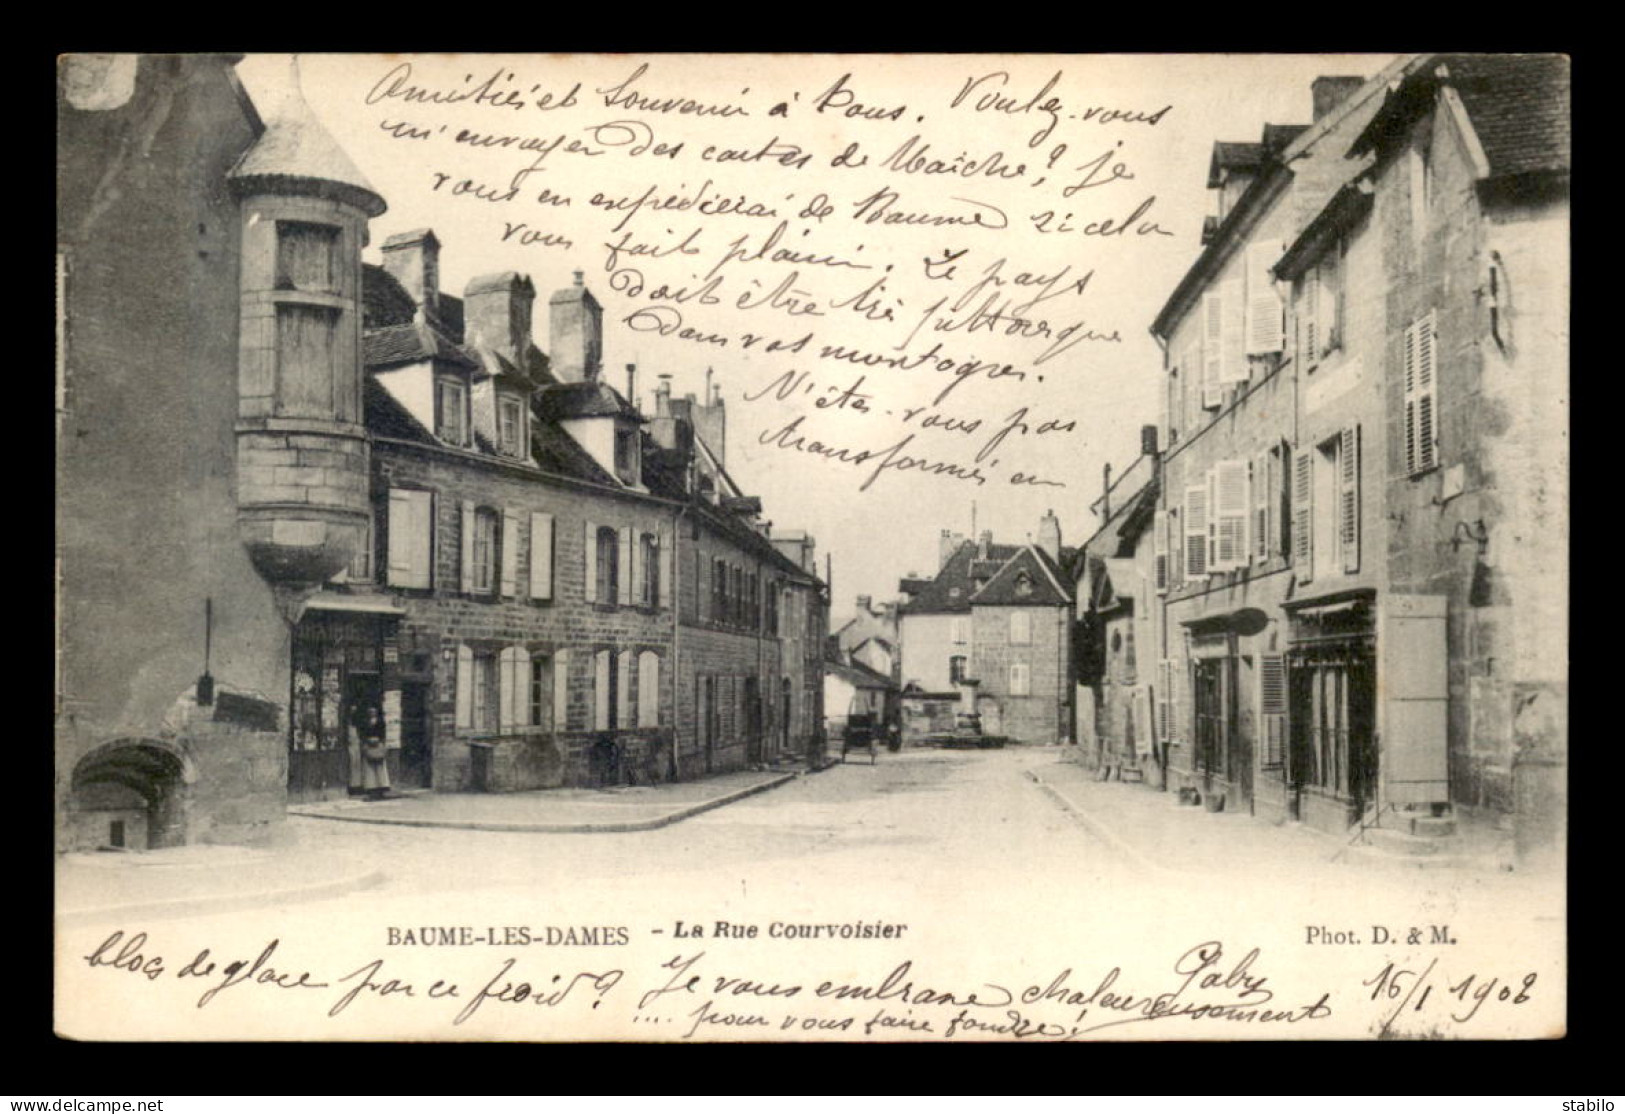 Amitiés et Souvenir à Vous. Voulez-vous
m'envoyer des cartes de Maîche? je
vous en expédierai de Baume si cela
vous fait plaisir. Le pays
doit être très pittoresque
dans vos montagnes.
N'êtes-vous pas
transformés en
BAUME-LES-DAMES - La Rue Courvoisier
Phot. D. & M.
blocs de glace par ce froid? Je vous embrasse chaleureusement
.... pour vous faire fondre!
Gaby
16/1 1902
stabilo